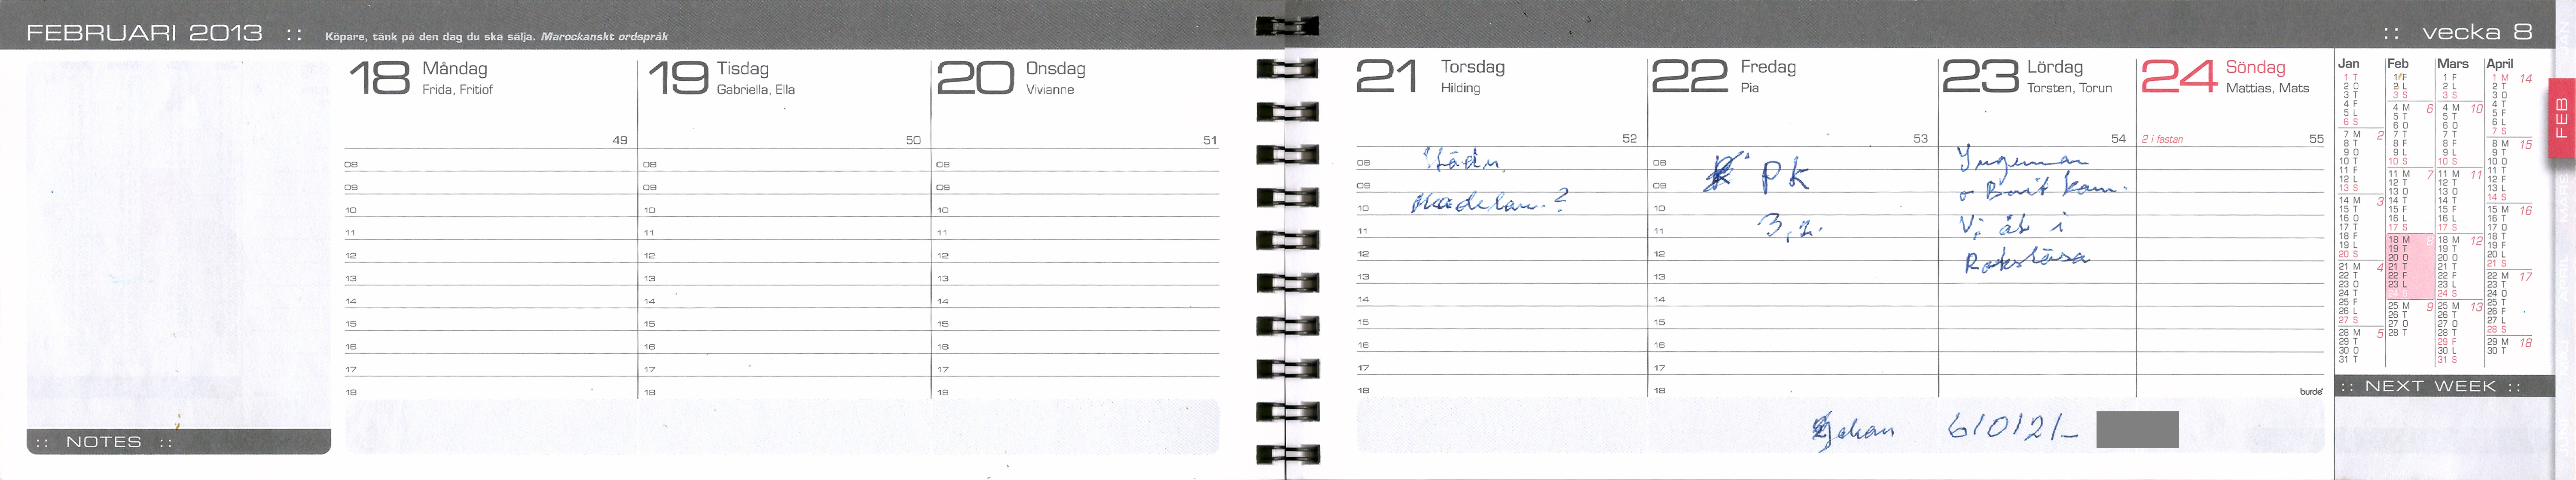 FEBRUARI 2013 :: Köpare, tänk på den dag du ska sälja. Marockanskt ordspråk
:: vecka 8
18 Måndag
Frida, Fritiof
49
08
09
10
11
12
13
14
15
16
17
18
19 Tisdag
Gabriella, Ella
50
08
09
10
11
12
13
14
15
16
17
18
20 Onsdag
Vivianne
51
08
09
10
11
12
13
14
15
16
17
18
:: NOTES ::
21 Torsdag
Hilding
52
08 Städn.
09
10 Madelan.?
11
12
13
14
15
16
17
18
22 Fredag
Pia
53
08
09 PK
10
11 3,2.
12
13
14
15
16
17
18
23 Lördag
Torsten, Torun
54
Ingemar
o Borit kom.
Vi åt i
Rökstäsa
24 Söndag
Mattias, Mats
2 i fastan 55
burde
Johan 610121-
Jan
1 T
2 O
3 T
4 F
5 L
6 S
7 M 2
8 T
9 O
10 T
11 F
12 L
13 S
14 M 3
15 T
16 O
17 T
18 F
19 L
20 S
21 M 4
22 T
23 O
24 T
25 F
26 L
27 S
28 M 5
29 T
30 O
31 T
Feb
1 F
2 L
3 S
4 M 6
5 T
6 O
7 T
8 F
9 L
10 S
11 M 7
12 T
13 O
14 T
15 F
16 L
17 S
18 M 8
19 T
20 O
21 T
22 F
23 L
24 S
25 M 9
26 T
27 O
28 T
Mars
1 F
2 L
3 S
4 M 10
5 T
6 O
7 T
8 F
9 L
10 S
11 M 11
12 T
13 O
14 T
15 F
16 L
17 S
18 M 12
19 T
20 O
21 T
22 F
23 L
24 S
25 M 13
26 T
27 O
28 T
29 F
30 L
31 S
April
1 M 14
2 T
3 O
4 T
5 F
6 L
7 S
8 M 15
9 T
10 O
11 T
12 F
13 L
14 S
15 M 16
16 T
17 O
18 T
19 F
20 L
21 S
22 M 17
23 T
24 O
25 T
26 F
27 L
28 S
29 M 18
30 T
:: NEXT WEEK ::
FEB